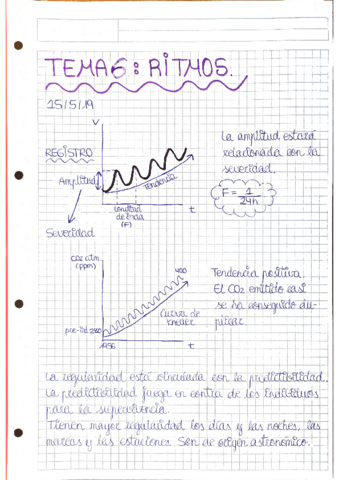 TEMA 6: RITMOS.
15/5/19
V
REGISTRO
Amplitud
Tendencia
longitud
de onda
(F)
t
Severidad
La amplitud estará
relacionada con la
severidad.
F = 1/24h
CO2 atm.
(ppm)
400
Curva de
Keeler
pre-Ind 280
1956
t
Tendencia positiva
El CO2 emitido casi
se ha conseguido du-
plicar.
La regularidad está vinculada con la predictibilidad.
La predictibilidad juega en contra de los individuos
para la supervivencia.
Tienen mayor regularidad los días y las noches, las
mareas y las estaciones. Son de origen astronómico.